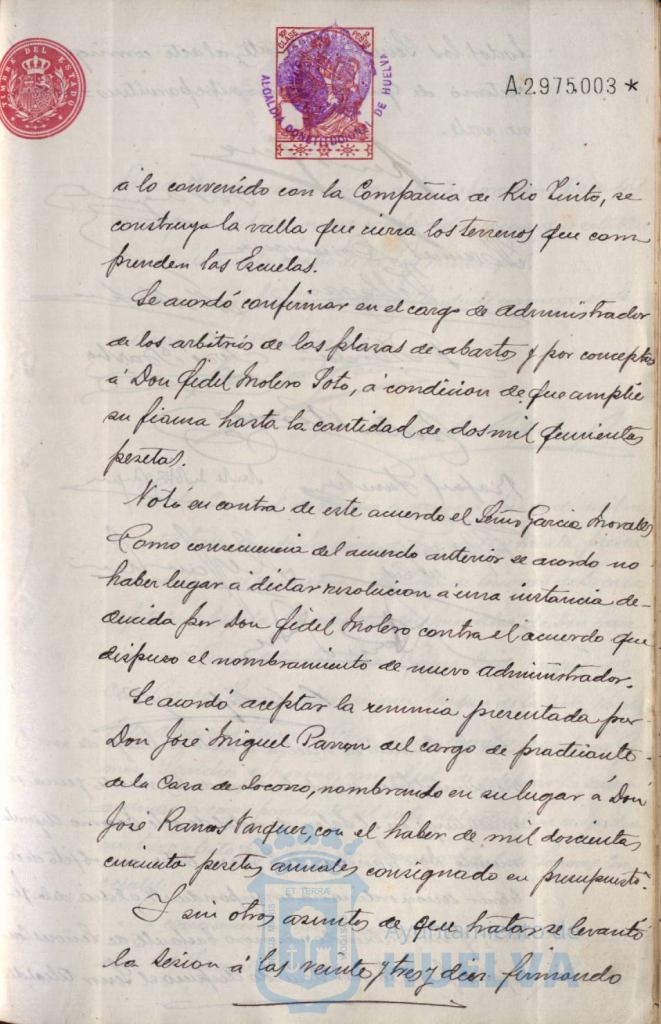 TIMBRE DEL ESTADO
CLASE
ALCALDIA CONSTITUCIONAL DE HUELVA
A.2975.003 *
á lo convenido con la Compañia de Rio Tinto, se
construya la valla que cierra los terrenos que com
prenden las Escuelas.
Se acordó confirmar en el cargo de administrador
de los arbitrios de las plazas de abastos y por conceptos
á Don Fidel Molero Soto, á condicion de que amplíe
su fianza hasta la cantidad de dos mil quinientas
pesetas.
Votó en contra de este acuerdo el Señor Garcia Morales
Como consecuencia del acuerdo anterior se acordo no
haber lugar á dictar resolucion á una instancia de-
ducida por Don Fidel Molero contra el acuerdo que
dispuso el nombramiento de nuevo administrador.
Se acordó aceptar la renuncia presentada por
Don José Miguel Parron del cargo de practicante
de la Casa de Socorro, nombrando en su lugar á Don
José Ramos Vazquez, con el haber de mil doscientas
cincuenta pesetas anuales consignado en presupuesto.
Y sin otros asuntos de que tratar se levantó
la sesion á las veinte y tres y diez firmando
Ayuntamiento de
HUELVA